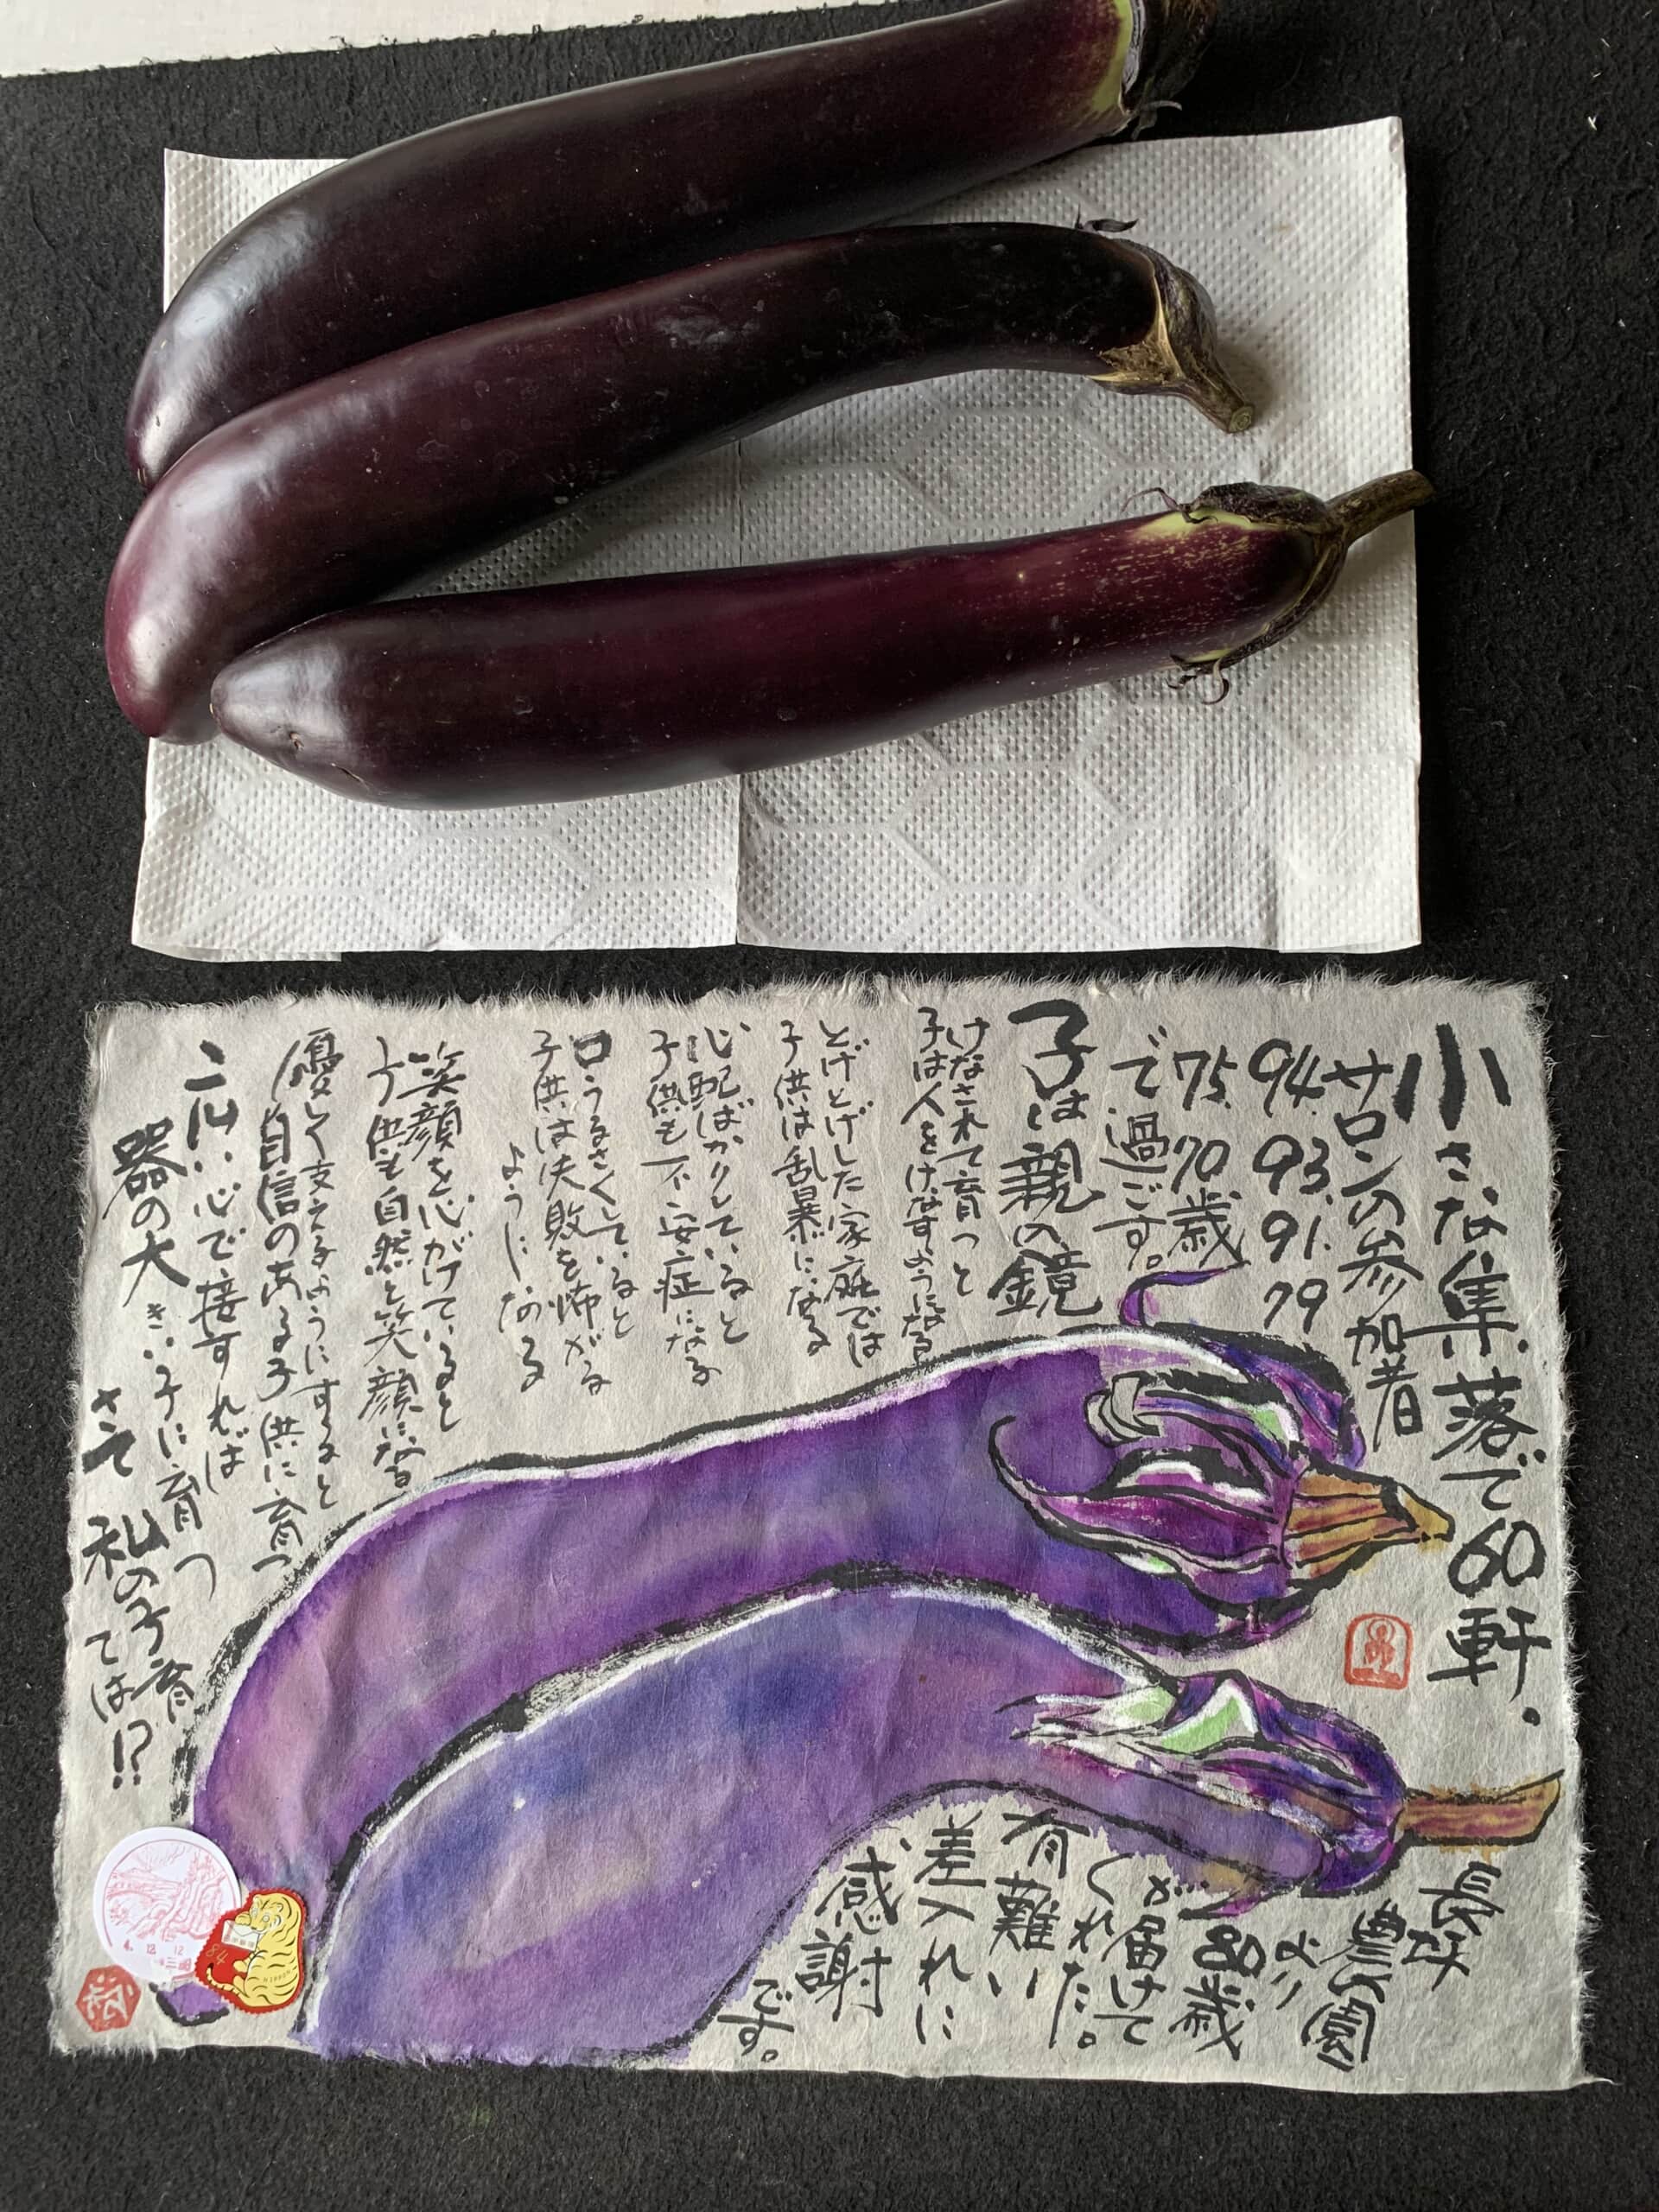 小さな集落で60軒。
サロンの参加者
94. 93. 91. 79
75. 70歳
で過ごす。
子は親の鏡
けなされて育つと
子は人をけなすようになる
とげとげした家庭では
子供は乱暴になる
心配ばかりしていると
子供も不安症になる
口うるさくしていると
子供は失敗を怖がる
ようになる
笑顔を心がけていると
子供も自然と笑顔になる
優しく支えるようにすると
自信のある子供に育つ
広い心で接すれば
器の大きい子に育つ
さて 私の子育
ては!?
長坂
農園
より
80歳
が届けて
くれた。
有難い
差入れに
感謝
です。
84
NIPPON